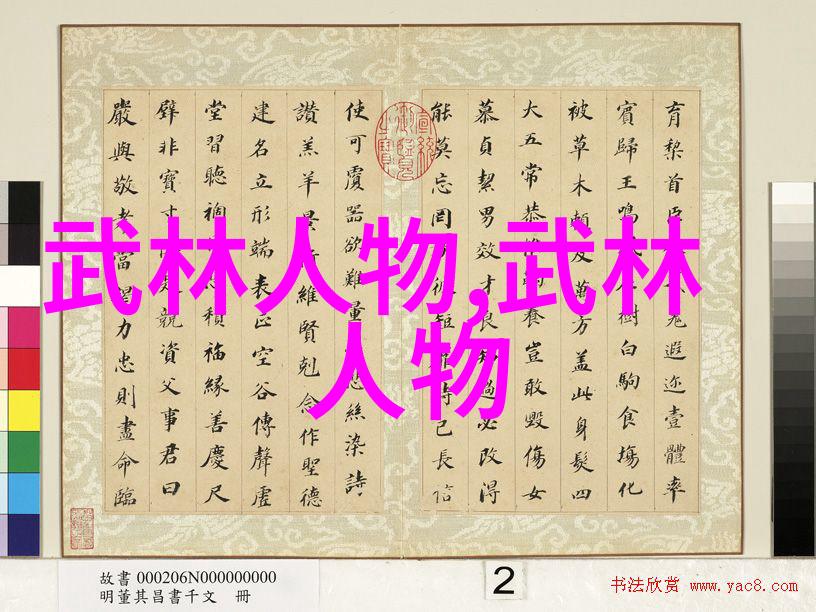 育棃首臣遐迩壹體率
賓歸王鳴樹白駒食塲化
被草木賴及萬方蓋此身髮四
大五常恭惟養豈敢毀傷女
慕貞絜男效才良知過必改得
能莫忘罔短恃己長信
使可覆器欲難量悲絲染詩
讚羔羊景行維賢剋念作聖德
建名立形端表正空谷傳聲虛
堂習聽禍積福緣善慶尺
璧非寶寸是競資父事君曰
嚴與敬孝當竭力忠則盡命臨
武林人物,武林
人物
故書 000206N000000000
明董其昌書千文 冊
2
书法欣赏 www.yac8.com